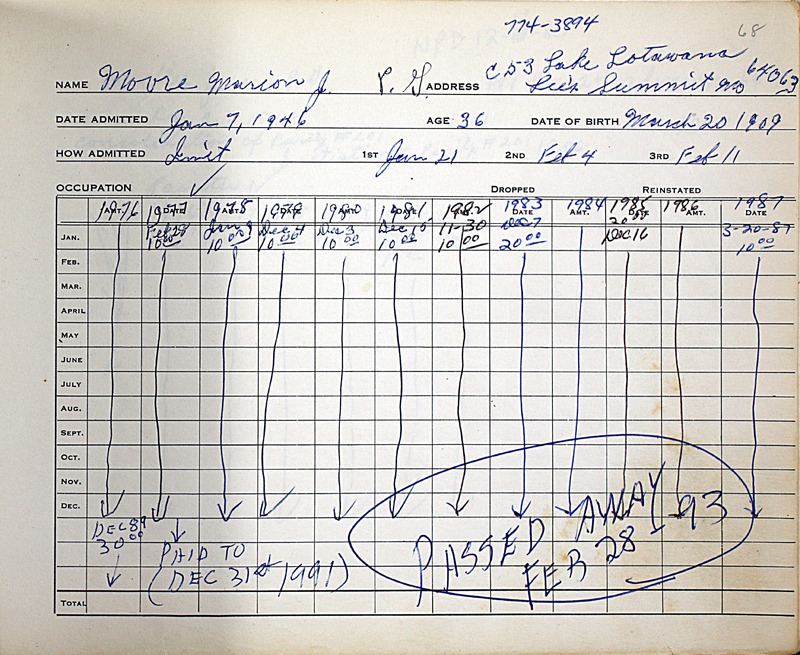 774-3894
68
NAME Moore Marion J. P. G ADDRESS C 53 Lake Lotawana
Lee's Summit Mo 64063
DATE ADMITTED Jan 7, 1946 AGE 36 DATE OF BIRTH March 20 1909
HOW ADMITTED Init 1ST Jan 21 2ND Feb 4 3RD Feb 11
OCCUPATION DROPPED REINSTATED
1976 1977 1978 1979 1980 1981 1982 1983 1984 1985 1986 1987
AMT. DATE AMT. DATE AMT. DATE AMT. DATE AMT. DATE AMT. DATE
Dec 4 Dec 3 Dec 10 11-30 Dec 7 20 00 3-20-87
JAN. 10 00 10 00 10 00 10 00 10 00 10 00 20 00 Dec 16 10 00
FEB.
MAR.
APRIL
MAY
JUNE
JULY
AUG.
SEPT.
OCT.
NOV.
DEC.
DEC 89
30 00
PAID TO
(DEC 31st 1991)
PASSED AWAY
FEB 28 - 93
TOTAL